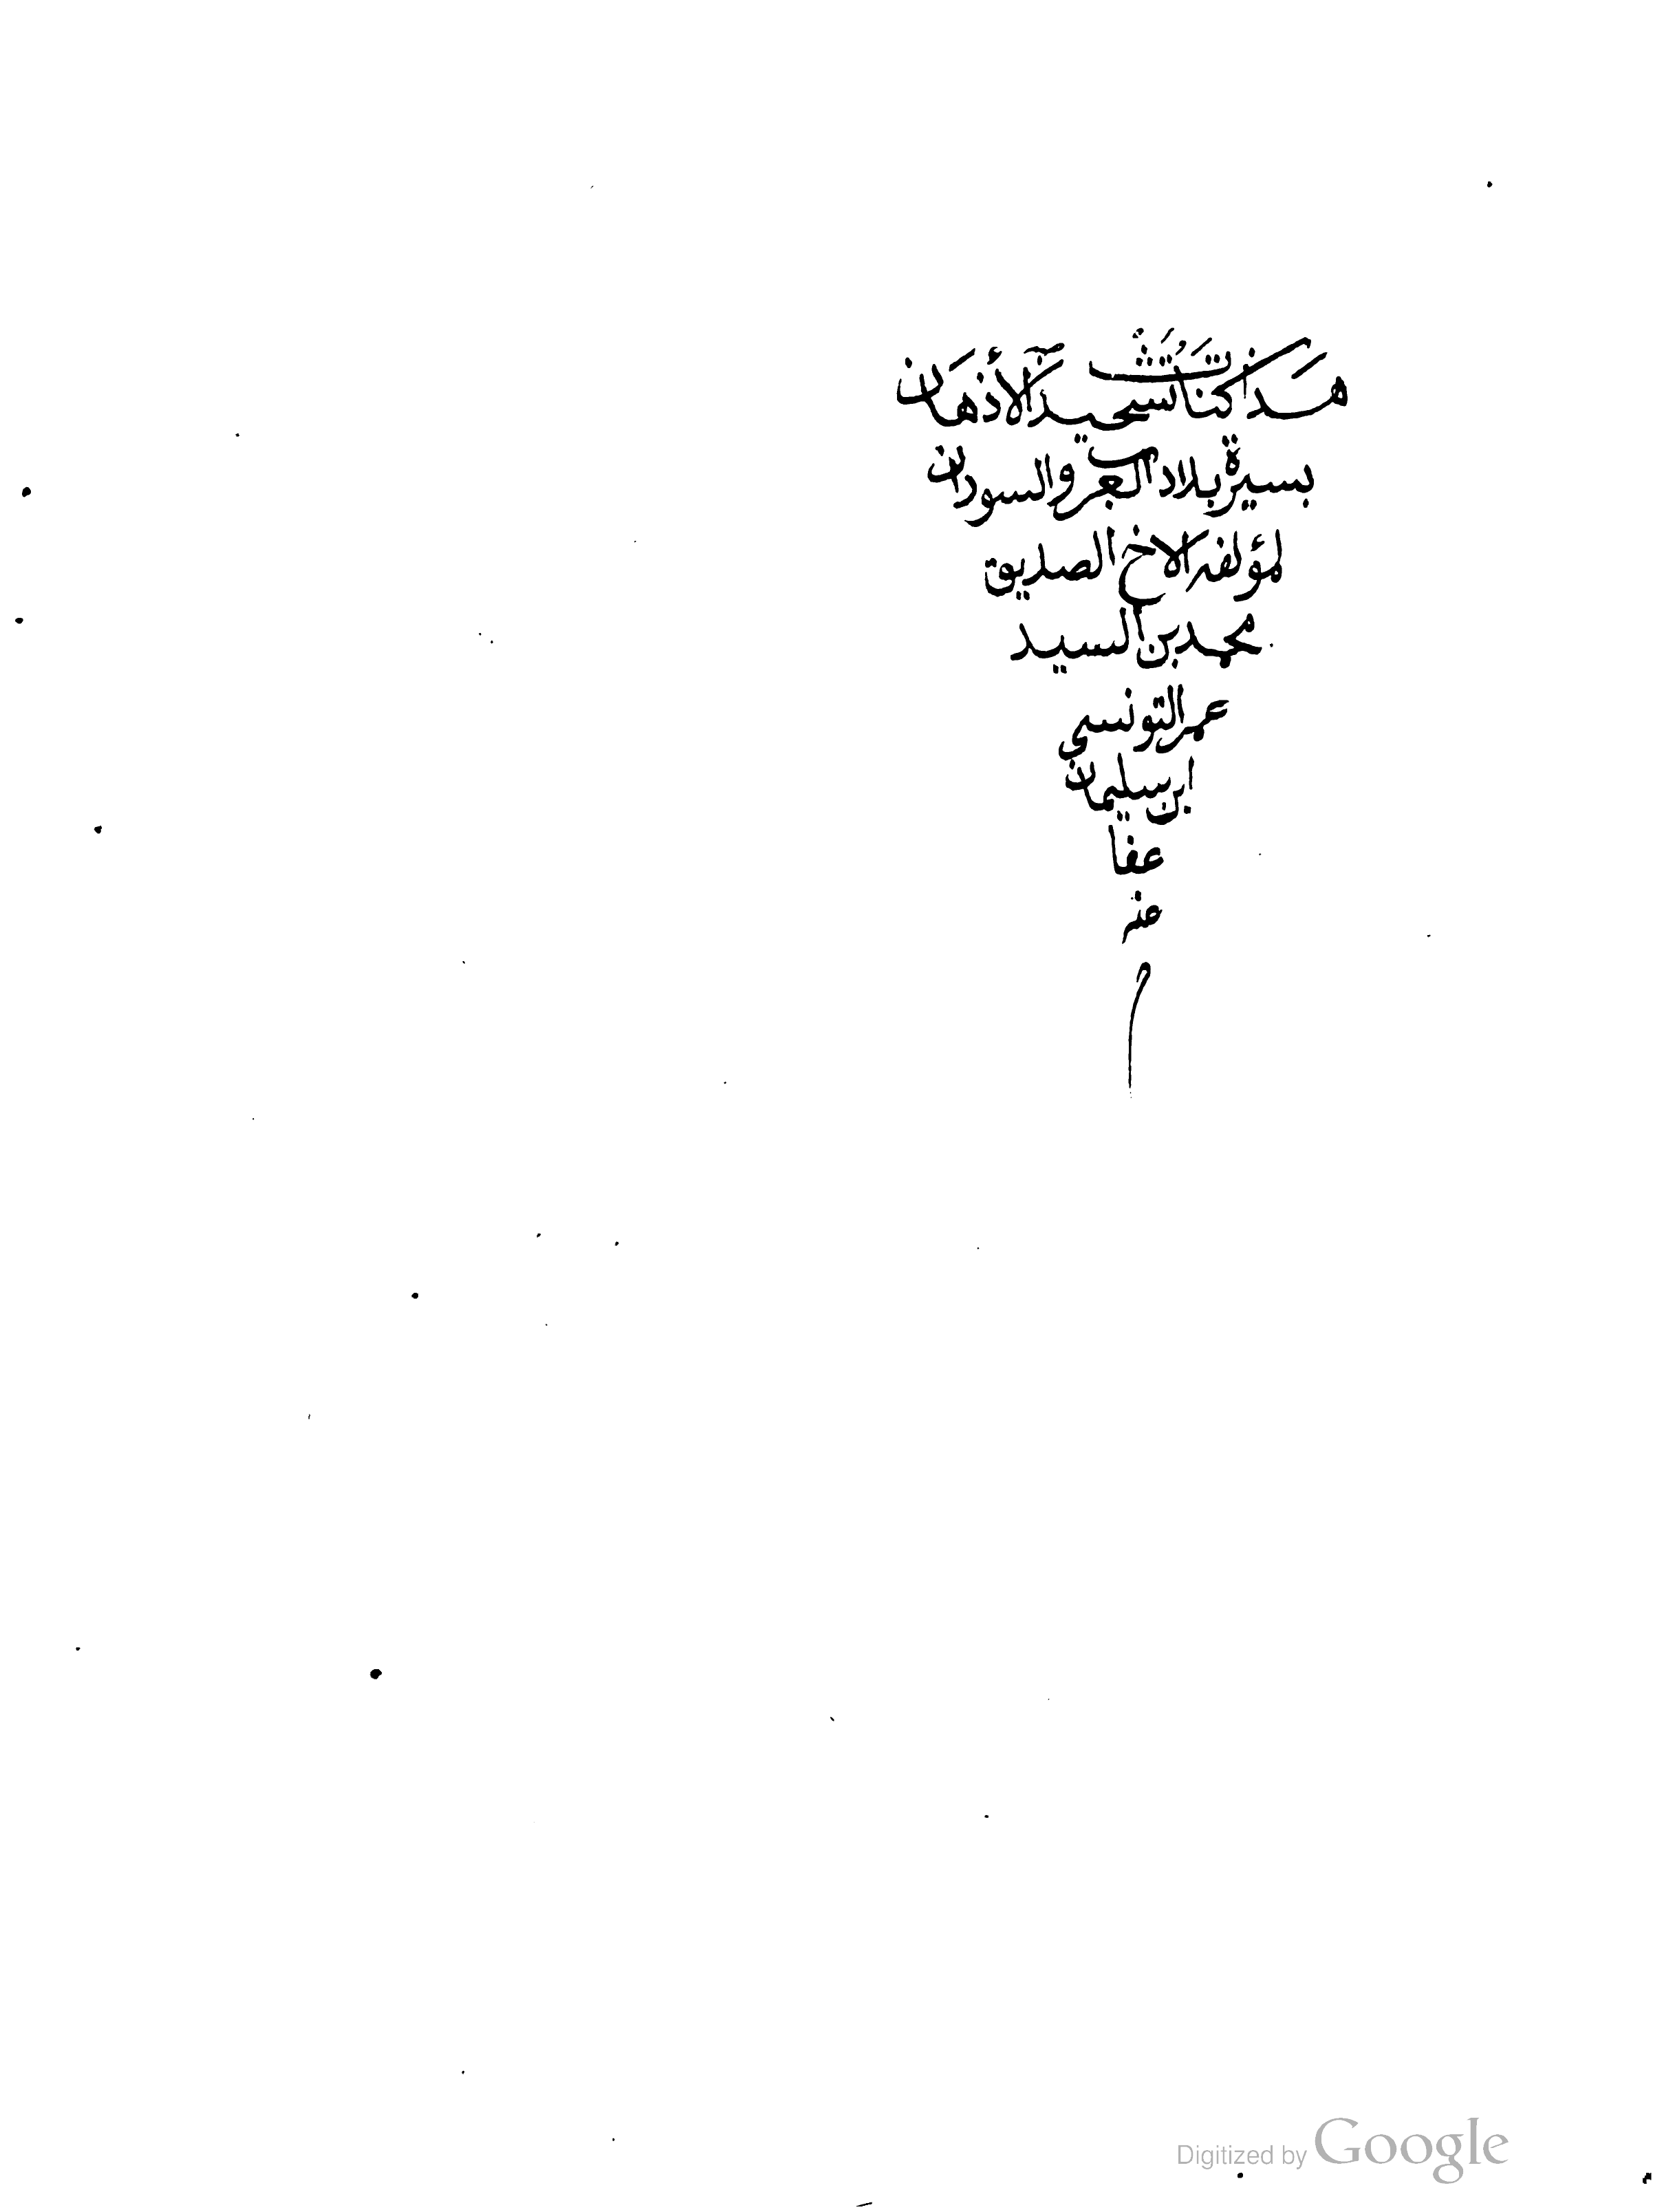 هذا كتاب تشحيذ الأذهان
بسيرة بلاد العرب والسودان
لمؤلفه الاخ الصديق
محمد بن السيد
عمر التونسي
ابن سليمان
عفا
عنه
Digitized by Google